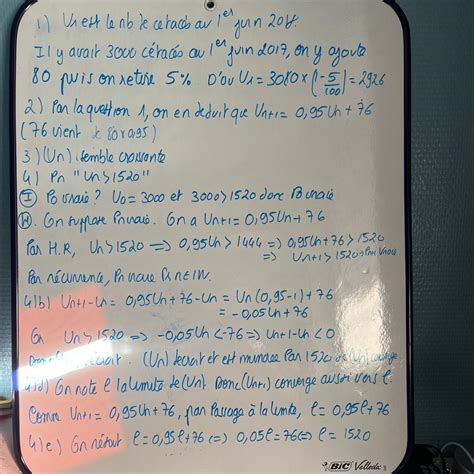 1) U1 est le nb de cétacés au 1er juin 2018.
Il y avait 3000 cétacés au 1er juin 2017, on y ajoute
80 puis on retire 5% D'où U1 = 3080 × (1 - 5/100) = 2926
2) Par la question 1, on en déduit que Un+1 = 0,95Un + 76
(76 vient de 80×0,95)
3) (Un) semble croissante
4) Pn "Un > 1520"
(I) P0 vraie ? U0 = 3000 et 3000 > 1520 donc P0 vraie
(H). On suppose Pn vraie. On a Un+1 = 0,95Un + 76
Par H.R, Un > 1520 => 0,95Un > 1444 => 0,95Un + 76 > 1520
=> Un+1 > 1520 => Pn+1 Vraie
Par récurrence, Pn vraie ∀n∈IN.
4)b) Un+1 - Un = 0,95Un + 76 - Un = Un(0,95-1) + 76
= -0,05Un + 76
On Un > 1520 => -0,05Un < -76 => Un+1 - Un < 0
Donc (Un) décroit. (Un) décroit et est minorée par 1520 donc (Un) converge
4)d) On note l la limite de (Un). Donc (Un+1) converge aussi vers l.
Comme Un+1 = 0,95Un + 76, par passage à la limite, l = 0,95l + 76
4)e) On résout l = 0,95l + 76 <=> 0,05l = 76 <=> l = 1520
BIC Velleda